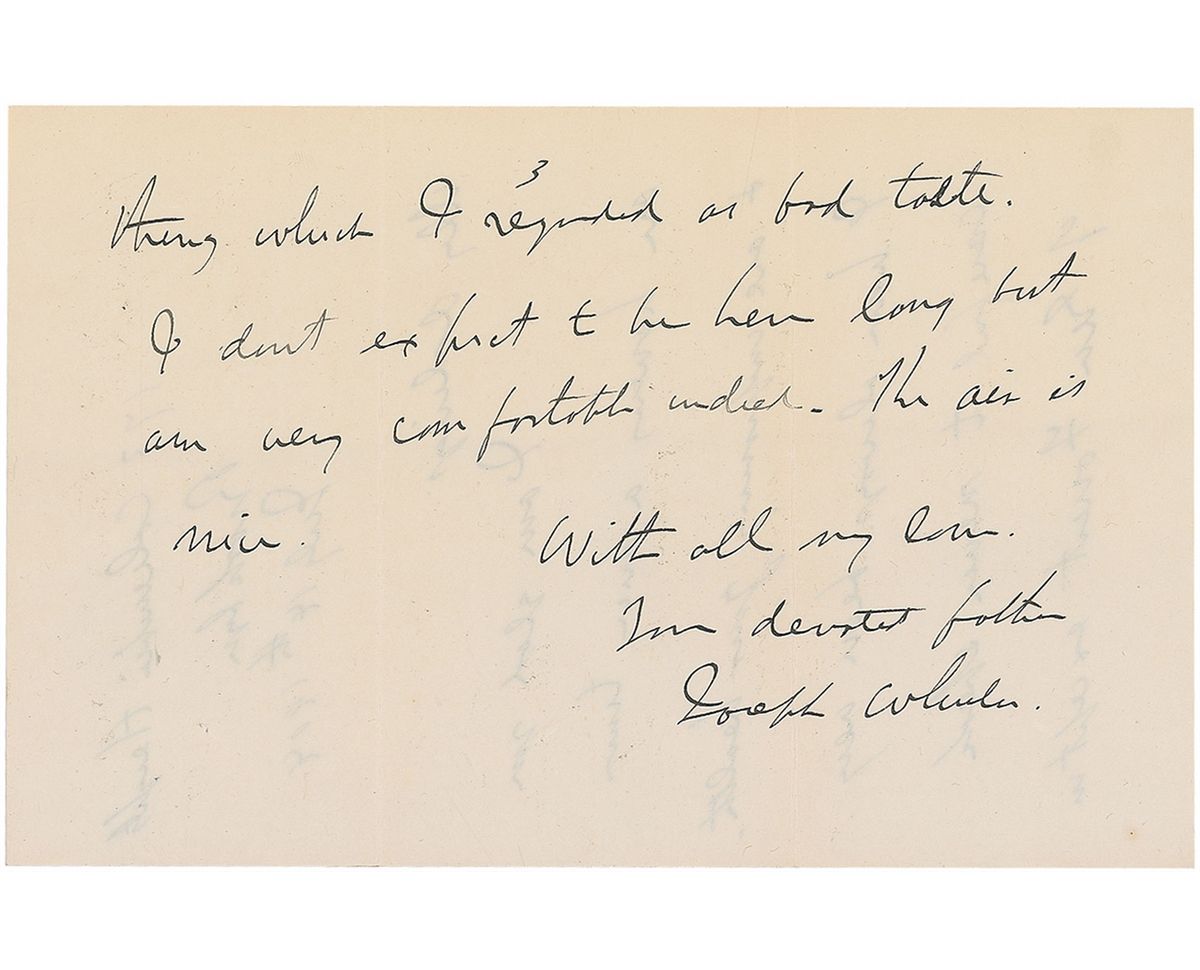 3
thing which I regarded as bad taste.
I dont expect to be here long but
am very comfortable indeed. The air is
nice. With all my love.
Your devoted father
Joseph Wheeler.